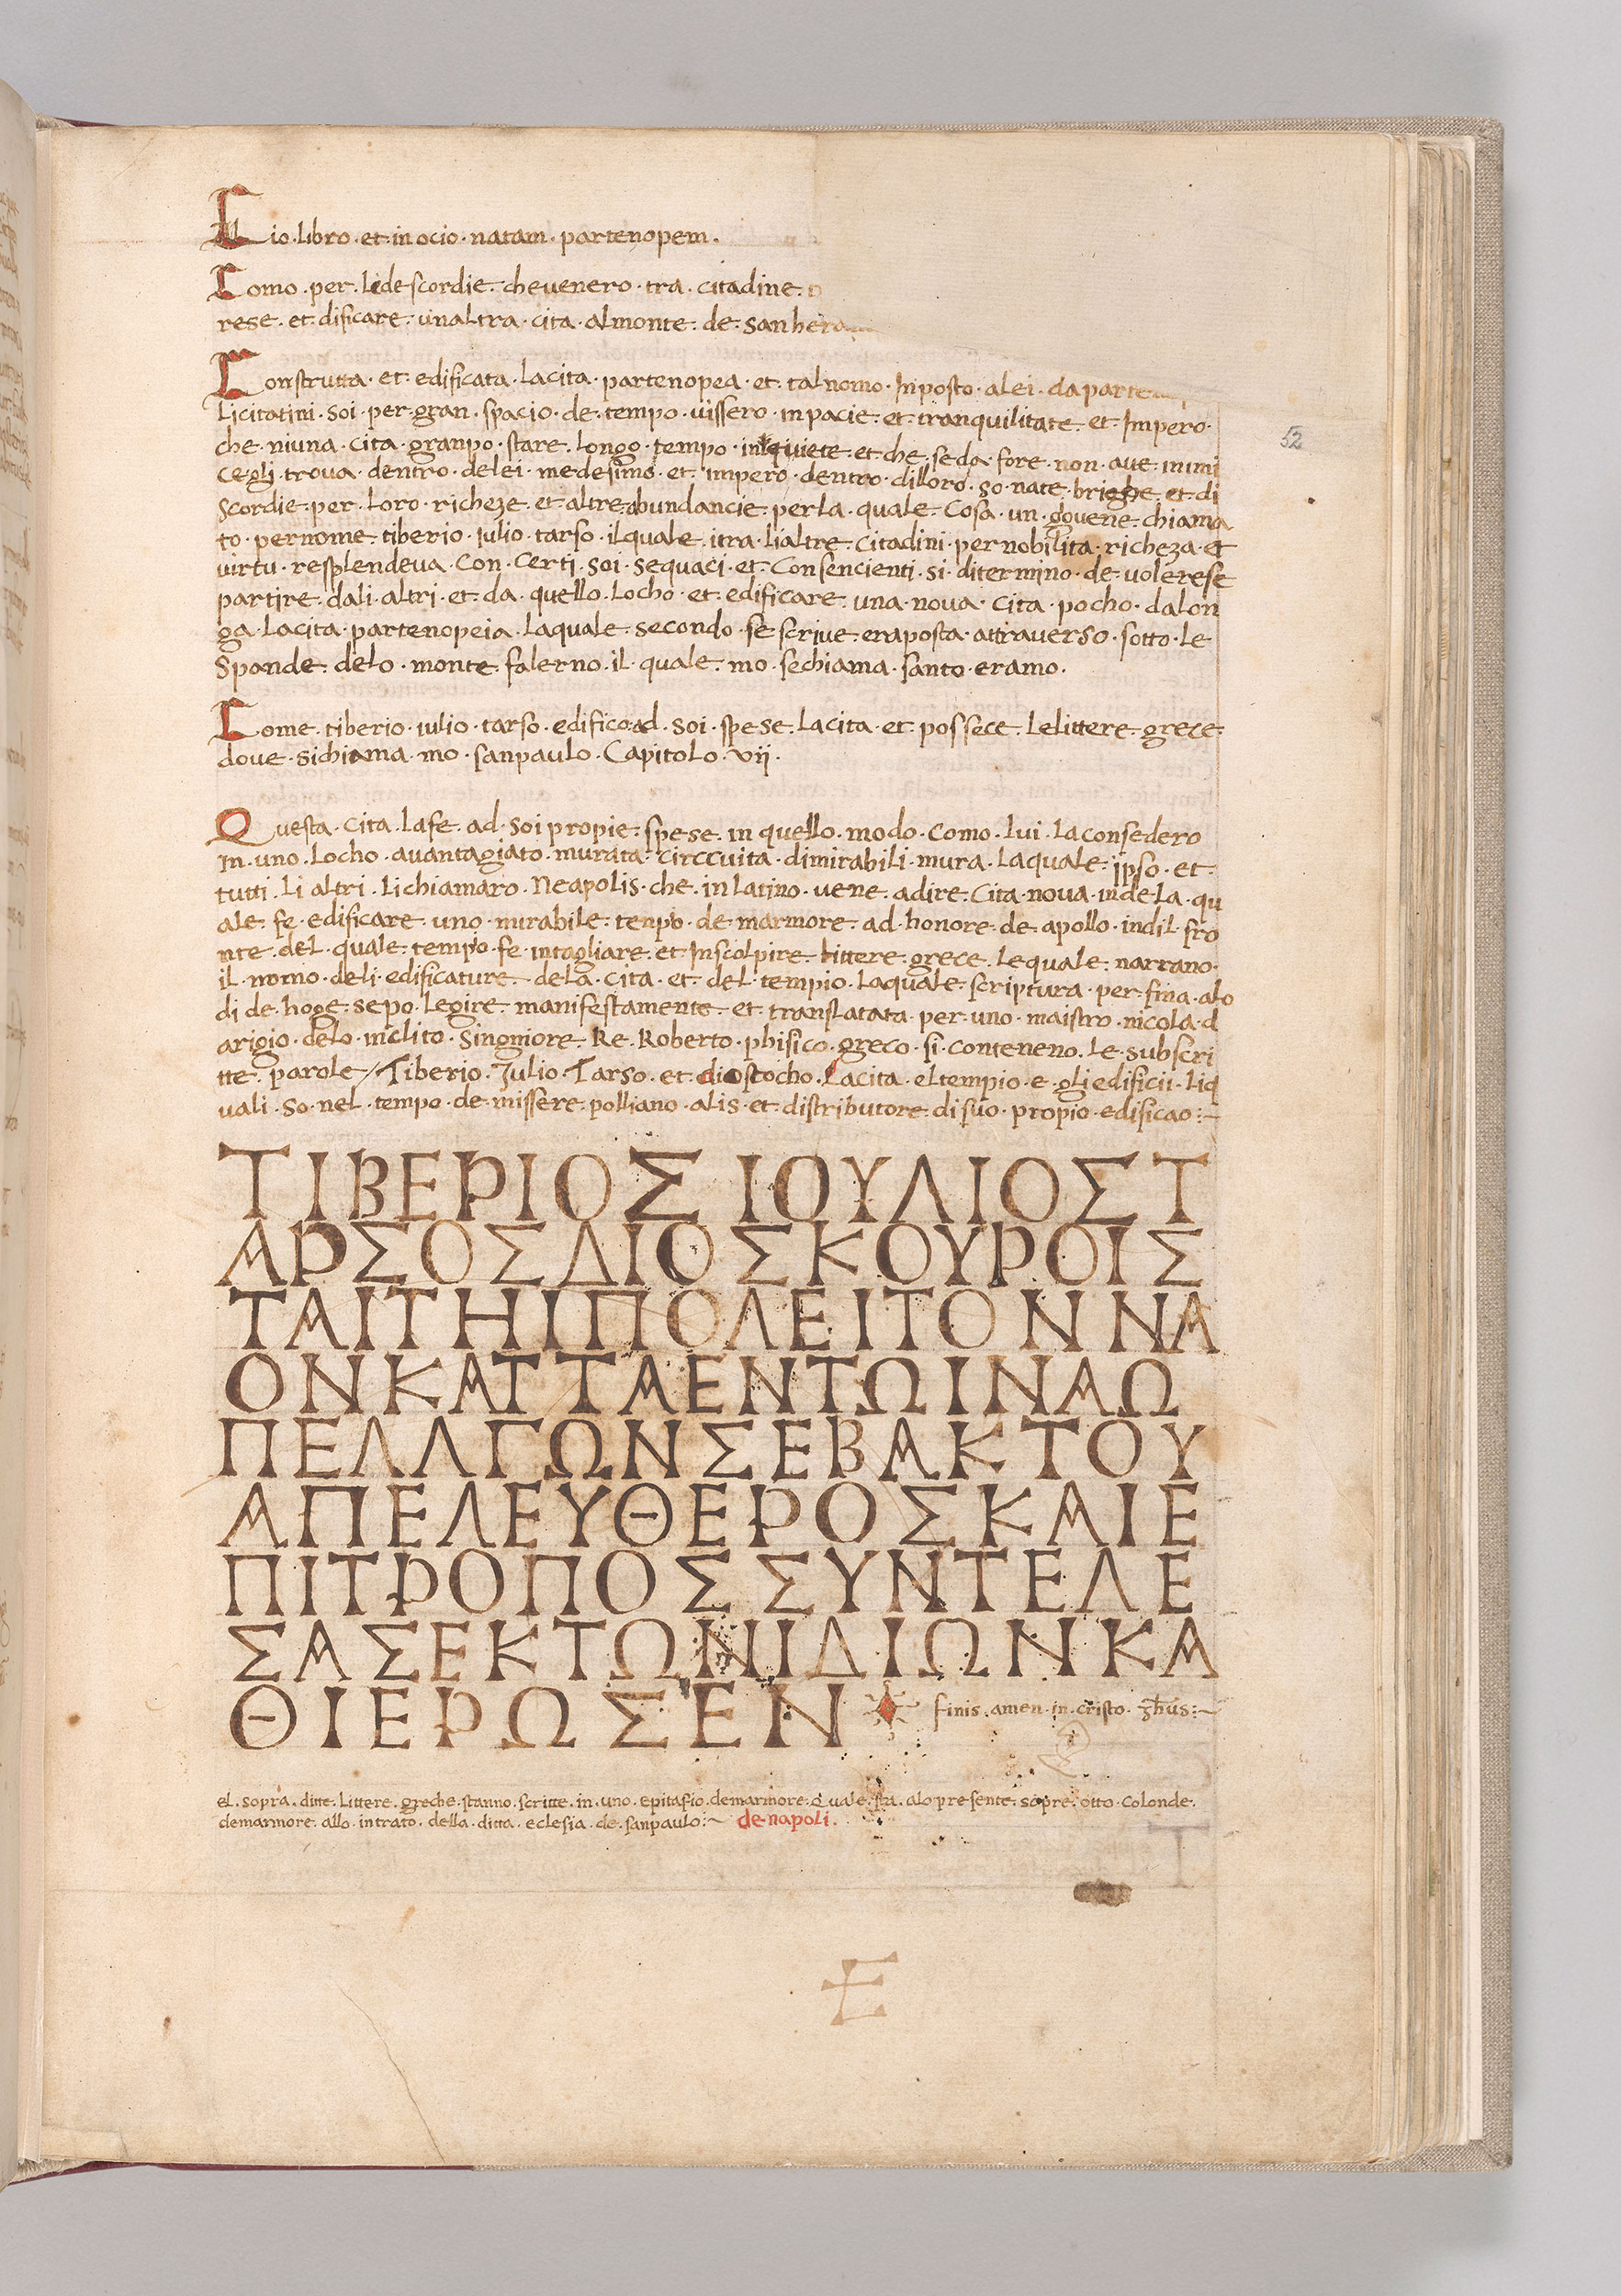 Eio · libro · et · in ocio · natam · partenopem .
Como · per · le descordie · che venero · tra · citadine ·
rese · et · dificare · unaltra · cita · al monte · de · san
Construtta · et · edificata · La cita · partenopea · et · tal nomo · Inposto · alei · da
Li citatini · soi · per · gran · spacio · de · tempo · vissero · in pacie · et · tranquilitate · et · Impero ·
che · niuna · cita · granpo · stare · Longo · tempo · in quiete · et · che · se da · fore · non · ave · inimi
ce gli · trova · dentro · de lei · medesimo · et · impero · dentro · dilloro · so · nate · brighe · et · di
scordie · per · Loro · richeze · et · altre abundancie · per la · quale · Cosa · un · govene · chiama
to · per nome · tiberio · Iulio · tarso · il quale · itra · li altre · Citadini · per nobilita · richeza · et
virtu · resplendeva · Con · Certi · soi · sequaci · et · Consencienti · si · ditermino · de · volerese
partire · dali · altri · et · da · quello · Locho · et · edificare · una · nova · cita · pocho · dalon
ga · La cita · partenopeia · La quale · secondo · se scrive · era posta · attraverso · sotto · Le
Sponde · delo · monte · falerno · il · quale · mo · se chiama · santo · eramo ·
Come · tiberio · iulio · tarso · edifico · ad · soi · spese · La cita · et · possece · Le littere · grece ·
dove · si chiama · mo · sanpaulo · Capitolo · vij ·
Questa · cita · La fe · ad · soi propie · spese · in quello · modo · Como · lui · La consedero
In · uno · Locho · avantagiato · murata · circcuita · di mirabili · mura · La quale · ipso · et ·
tutti · Li altri · Li chiamaro · Neapolis · che · in latino · vene · adire · Cita · nova · in de La · qu
ale · fe · edificare · uno · mirabile · tenpo · de · marmore · ad · honore · de · apollo · indil · fro
nte · del · quale · tempio · fe · intagliare · et · Inscolpire · littere · grece · Le quale · narrano ·
il · nomo · deli · edificature · dela · cita · et · del · tempio · La quale · scriptura · per fina · alo
di de · hoge · se po · Legire · manifestamente · et · translatata · per · uno · maistro · nicola · d
arigio · delo · inclito · Singniore · Re · Roberto · phisico · greco · si · Conteneno · Le · subscri
tte · parole / Tiberio · Julio · Tarso · et · diostocho · La cita · el tempio · e · gli edificii · Liq
uali · So · nel · tempo · de · missere · polliano · alis · et · distributore · di suo · propio · edificao :~
ΤΙΒΕΡΙΟΣ ΙΟΥΛΙΟΣΤ
ΑΡΣΟΣΔΙΟΣΚΟΥΡΟΙΣ
ΤΑΙΤΗΙΠΟΛΕΙΤΟΝΝΑ
ΟΝΚΑΤΤΑΕΝΤΩΙΝΑΩ
ΠΕΛΛΓΩΝΣΕΒΑΚΤΟΥ
ΑΠΕΛΕΥΘΕΡΟΣΚΑΙΕ
ΠΙΤΡΟΠΟΣΣΥΝΤΕΛΕ
ΣΑΣΕΚΤΩΝΙΔΙΩΝΚΑ
ΘΙΕΡΩΣΕΝ finis · amen · in · cristo ·
el · sopra · ditte · Littere · greche · stanno · scritte · in · uno · epitafio · de marmore · Quale · sta · alo presente · sopre · otto · Colonde ·
de marmore · allo · intrato · della · ditta · eclesia · de · sanpaulo :~ de napoli ·
52